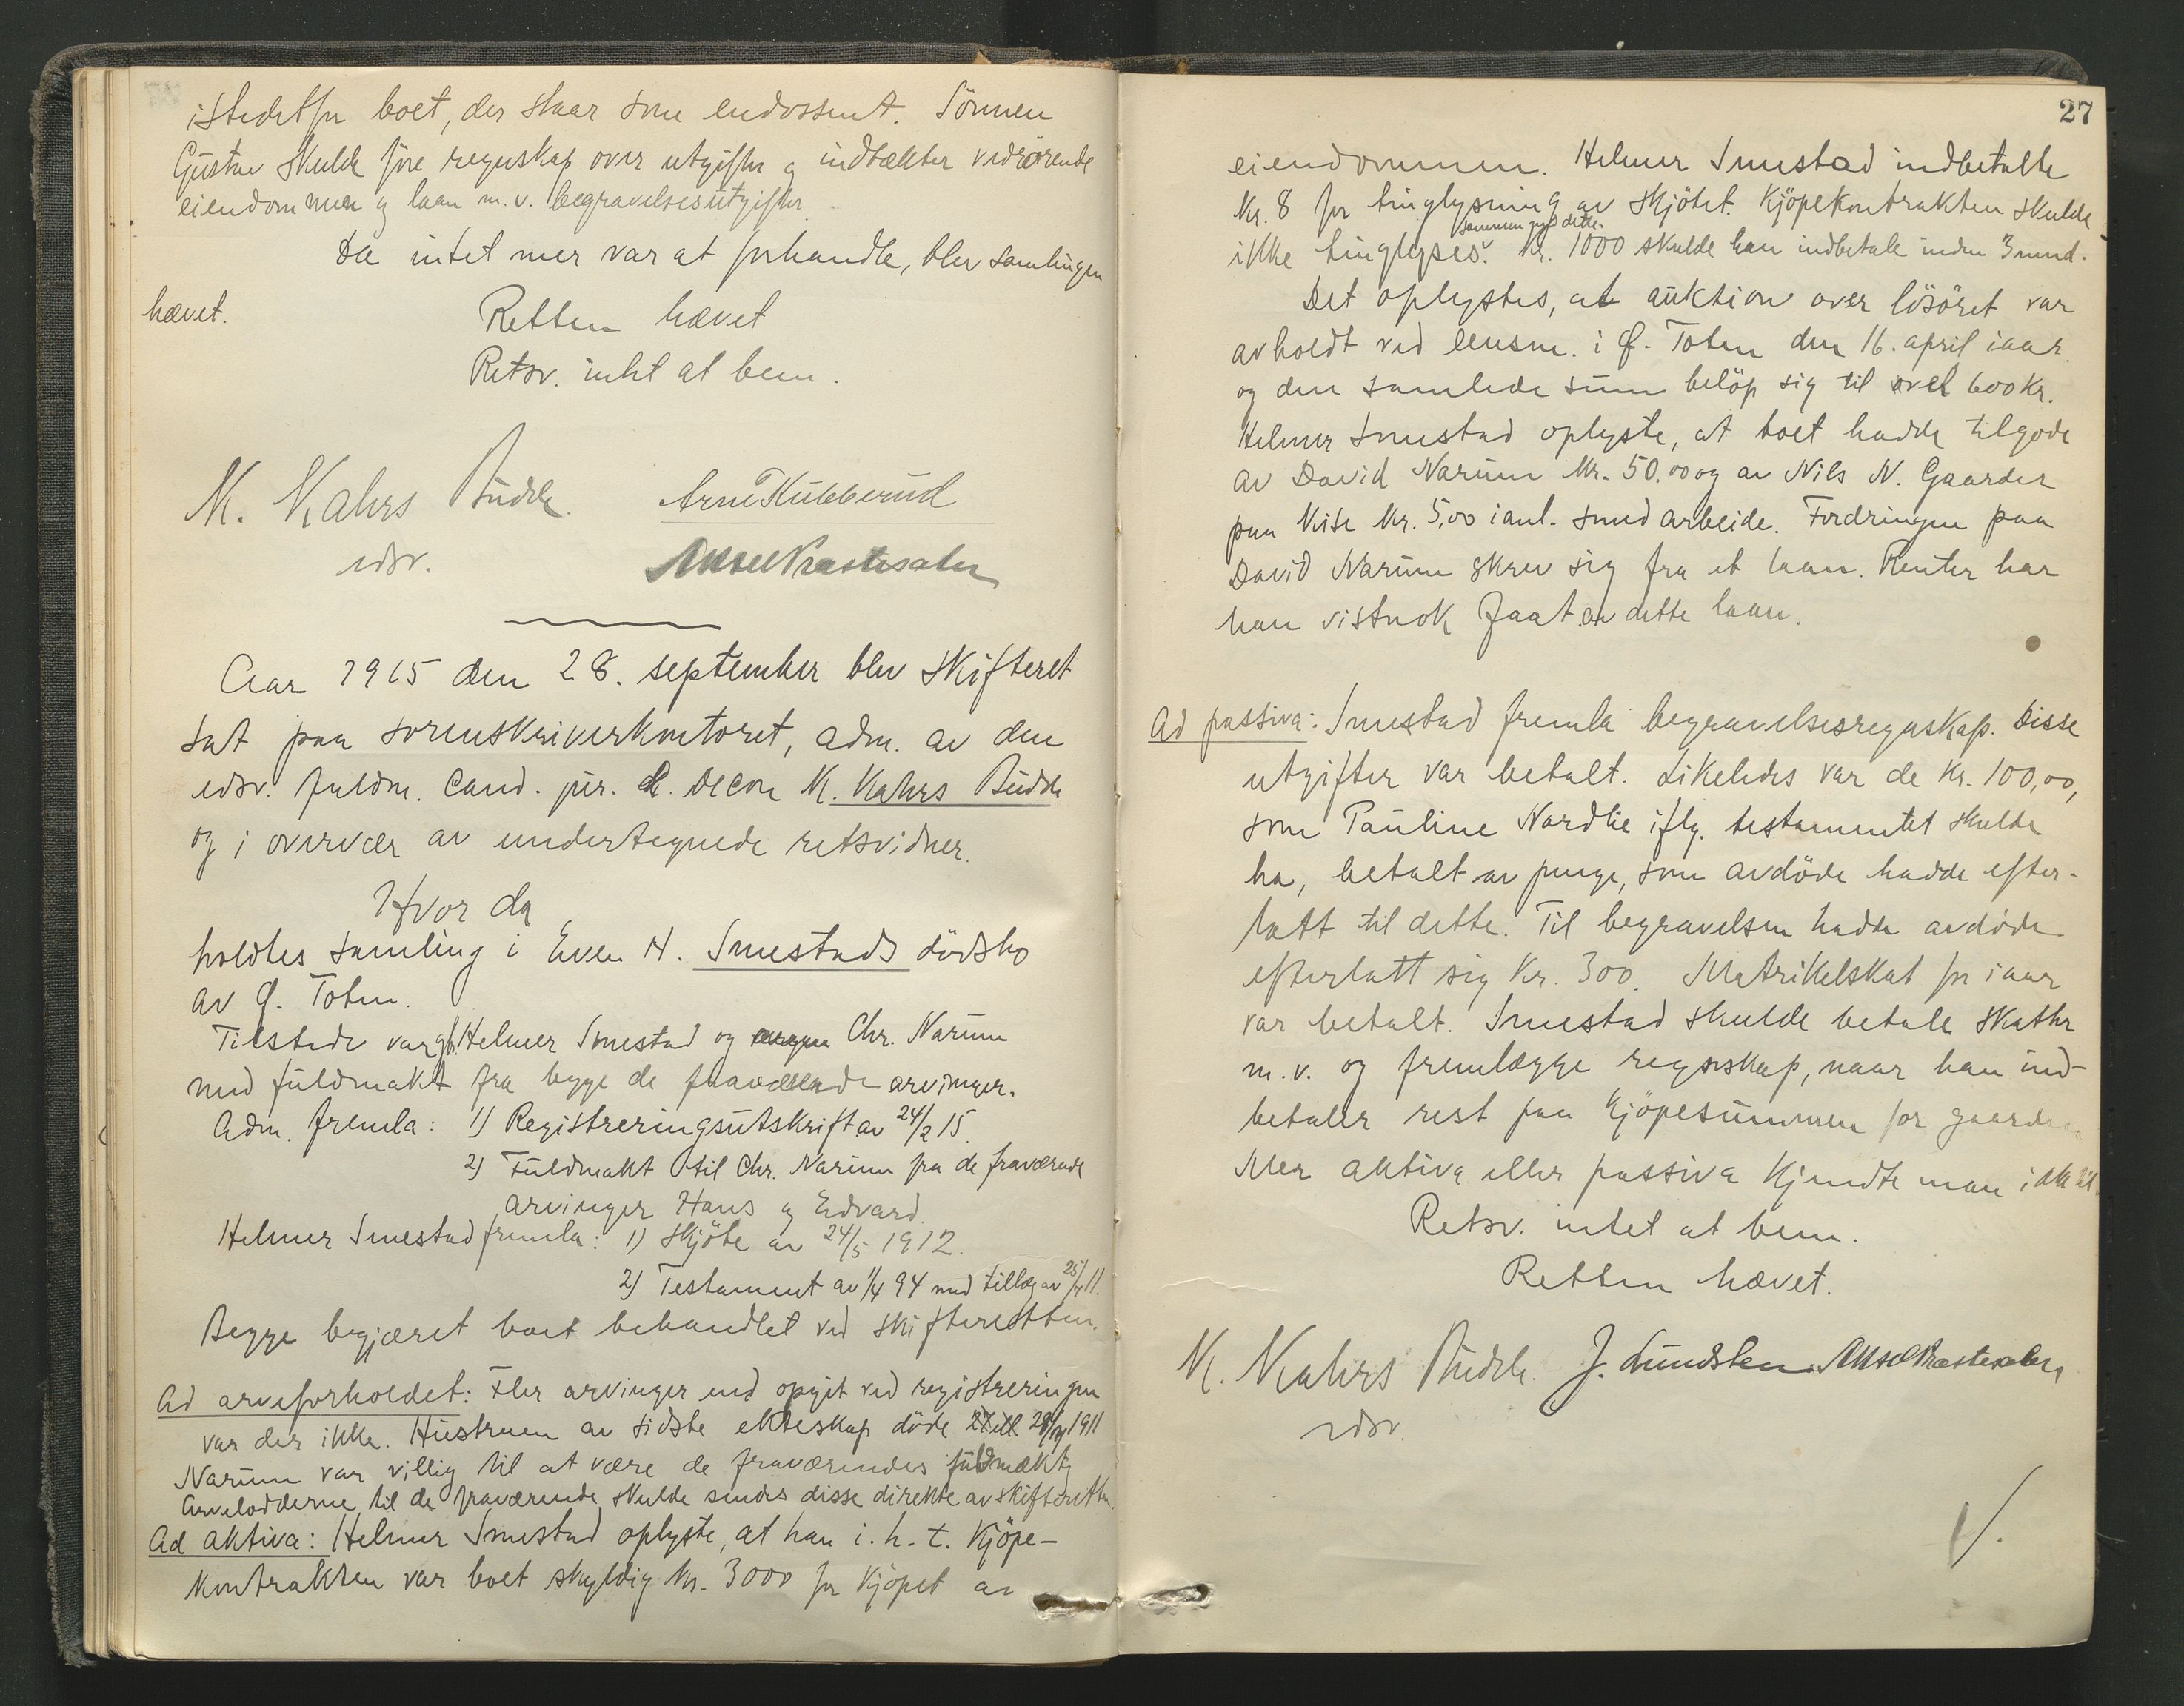 istedetfor boet, der staar som endossent. Sönnen
Gustav skulde före regnskap over utgifter og indtækter vedrörende
eiendommen og laan m.v. begravelsesutgifter.
Da intet mer var at forhandle, blev samlingen
hævet.
Retten hævet
Retsv. intet at bem.
K. Kahrs Budde. Arne Kubberud
edsv. Aksel Præstesæter
Aar 1915 den 28. september blev skifteret
sat paa sorenskriverkontoret, adm. av den
edsv. fuldm. cand. jur. & oecon K. Kahrs Budde
og i overvær av undertegnede retsvidner.
Hvor da
holdtes samling i Even H. Smestads dödsbo
av Ö. Toten.
Tilstede var gb. Helmer Smestad og Chr. Narum
med fuldmakt fra begge de fraværende arvinger.
Adm. fremla: 1) Registreringsutskrift av 24/2 15.
2) Fuldmakt til Chr. Narum fra de fraværende
arvinger Hans og Edvard.
Helmer Smestad fremla: 1) Skjöte av 24/5 1912.
2) Testament av 1/4 94 med tillæg av 25/4 11.
Begge begjæret boet behandlet ved skifteretten.
Ad arveforholdet: Fler arvinger end opgit ved registreringen
var der ikke. Hustruen av sidste ekteskap döde 1911
Narum var villig til at være de fraværendes fuldmæktig
Arvelodderne til de fraværende skulde sendes disse direkte av skifteretten.
Ad aktiva: Helmer Smestad oplyste, at han i. h. t. kjöpe-
kontrakten var boet skyldig kr. 3000 for kjöpet av
27
eiendommen. Helmer Smestad indbetalte
kr. 8 for tinglysning av skjötet. Kjöpekontrakten skulde
sammen med dette.
ikke tinglyses. Kr. 1000 skulde han indbetale inden 3 mnd.
Det oplystes, at auktion over lösöret var
avholdt ved lensm. i Ö. Toten den 16. april iaar
og den samlede sum belöp sig til vel 600 kr.
Helmer Smestad oplyste, at boet hadde tilgode
av David Narum kr. 50.00 og av Nils N. Gaarder
paa Kise kr. 5,00 i anl. smedarbeide. Fordringen paa
David Narum skrev sig fra et laan. Renter har
han vistnok faat av dette laan.
Ad passiva: Smestad fremla begravelsesregnskap. Disse
utgifter var betalt. Likeledes var de kr. 100,00,
som Pauline Nordlie iflg. testamentet skulde
ha, betalt av penge, som avdöde hadde efter-
latt til dette. Til begravelsen hadde avdöde
efterlatt sig kr. 300. Matrikelskat for iaar
var betalt. Smestad skulde betale skatter
m.v. og fremlægge regnskap, naar han ind-
betaler rest paa kjöpesummen for gaarden
Mer aktiva eller passiva kjendte man ikke til.
Retsv. intet at bem.
Retten hævet.
K. Kahrs Budde. J. Lundsten Aksel Præstesæter
edsv.